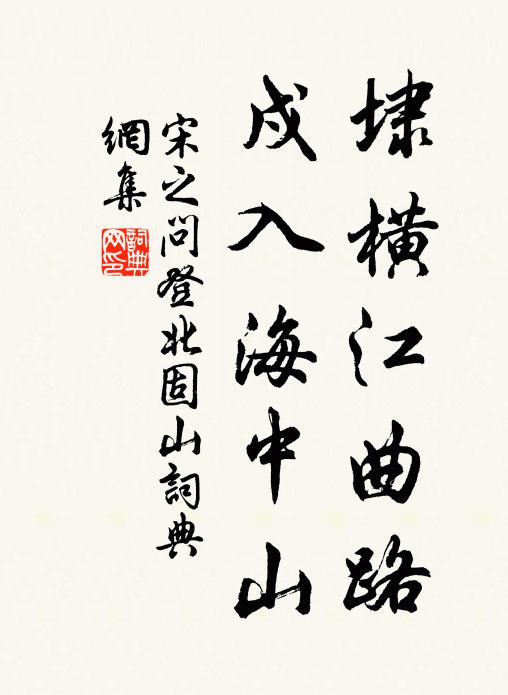 埭橫江曲路
戍入海中山
宋之问登北固山詞典
網集
詞典
网印